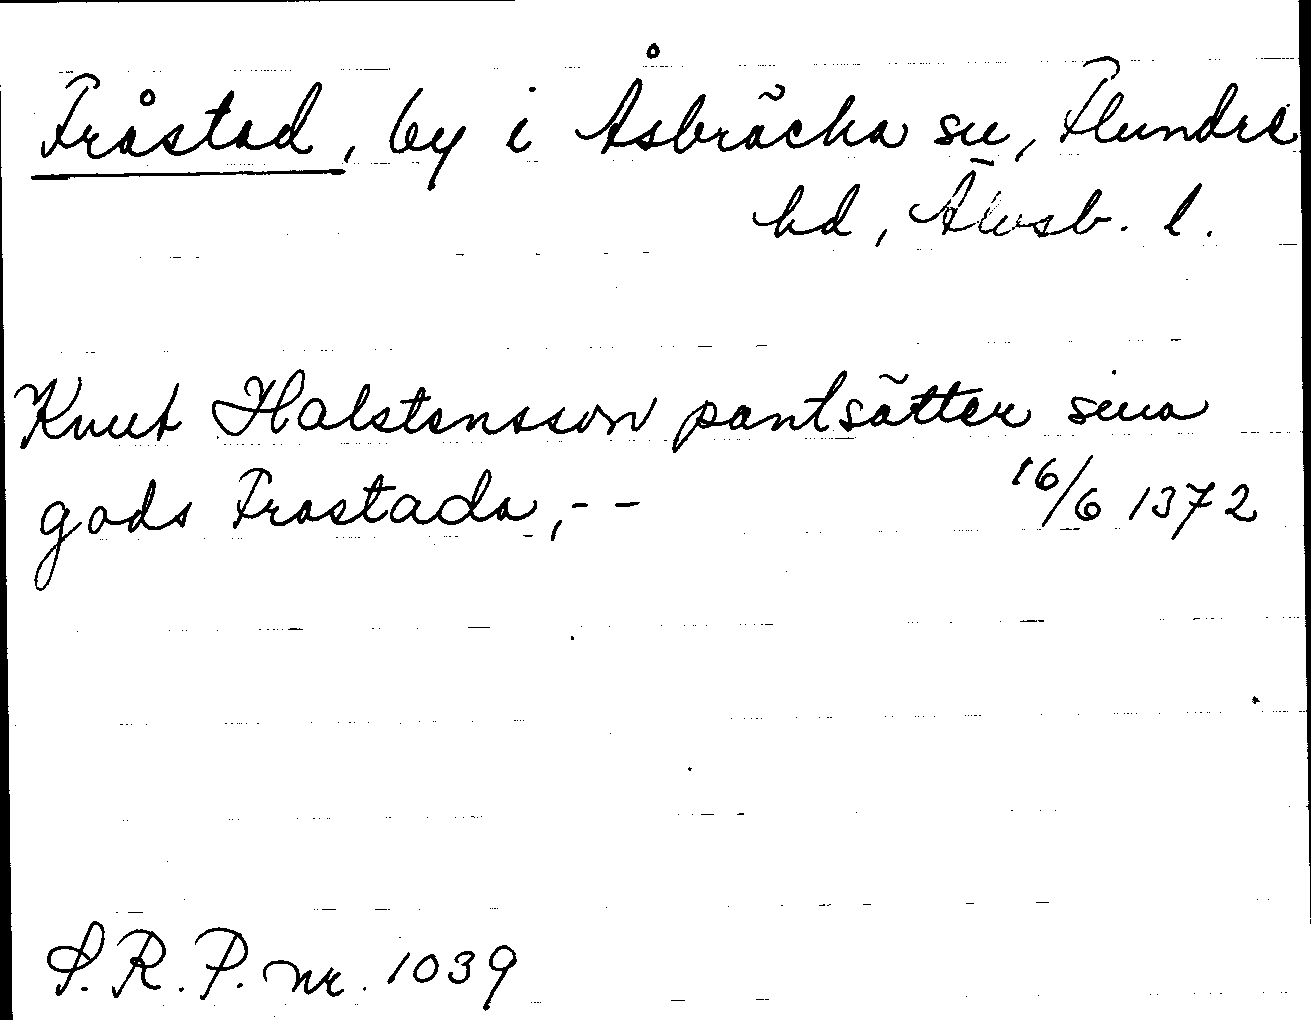 Fråstad, by i Åsbräcka sn, Flundre
hd, Älvsb. l.
Knut Halstensson pantsätter sina
gods Frastada, - -
16/6 1372
S.R.P. nr. 1039